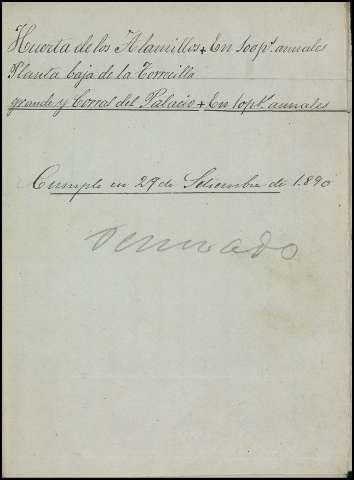 Huerta de los Alamillos + En 100 pts. anuales
Planta baja de la Torrecilla
grande y Corral del Palacio + En 10 pts. anuales
Cumple en 29 de Setiembre de 1.890